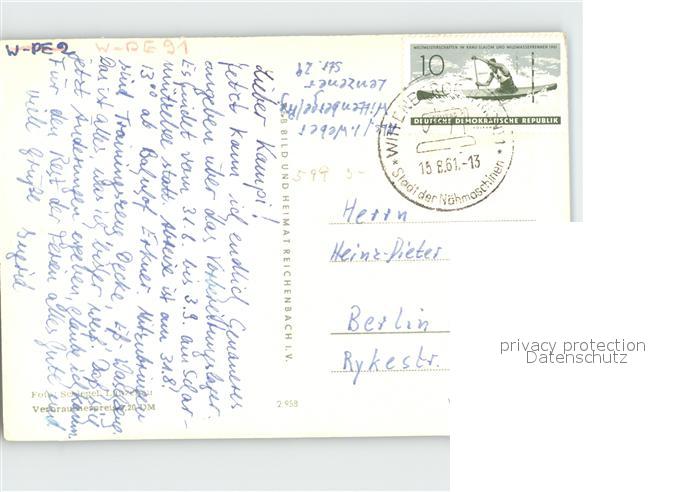 W-PE2 W-BE91
WELTMEISTERSCHAFTEN IM KANU-SLALOM UND WILDWASSERRENNEN 1961
10
DEUTSCHE DEMOKRATISCHE REPUBLIK
WITTENBERGE
15.8.61.-13
* Stadt der Nähmaschinen *
Wittenberge
Lenzener
Str. 28
Lieber Kampi!
Jetzt kann ich endlich Genaueres
angeben über das Vorbereitungslager.
Es findet vom 31.8. bis 3.9. am Schar-
mützelsee statt. Abreise ist am 31.8.
13°° ab Bahnhof Erkner. Mitzubringen
sind Trainingszeug, Decke, Eß-, Waschzeug.
Das ist alles, was ich bisher weiß. Daß sich
jetzt Änderungen ergeben, glaube ich kaum.
Für den Rest der Ferien alles Gute und
viele Grüße
BILD UND HEIMAT REICHENBACH I.V.
599 3-
Herrn
Heinz-Dieter
Berlin
Rykestr.
Verbraucherpreis 0,20 DM
2 958
privacy protection
Datenschutz